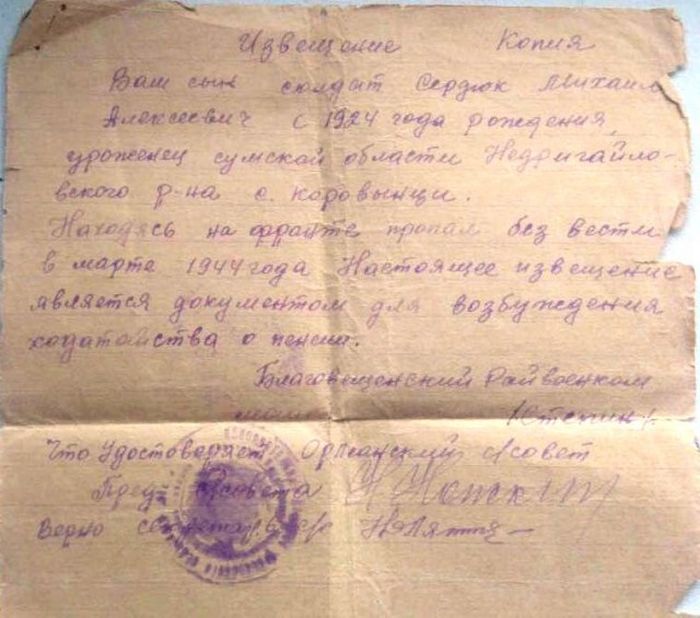 Извещение Копия
Ваш сын солдат Сердюк Михаил
Алексеевич с 1924 года рождения,
уроженец сумской области Недригайло-
вского р-на с. Коровынци.
Находясь на фронте пропал без вести
в марте 1944 года Настоящее извещение
является документом для возбуждения
ходатайства о пенсии.
Благовещенский Райвоенком
Что Удостоверяет Орлянский с/совет
Пред. с/совета
Верно секретарь с/с